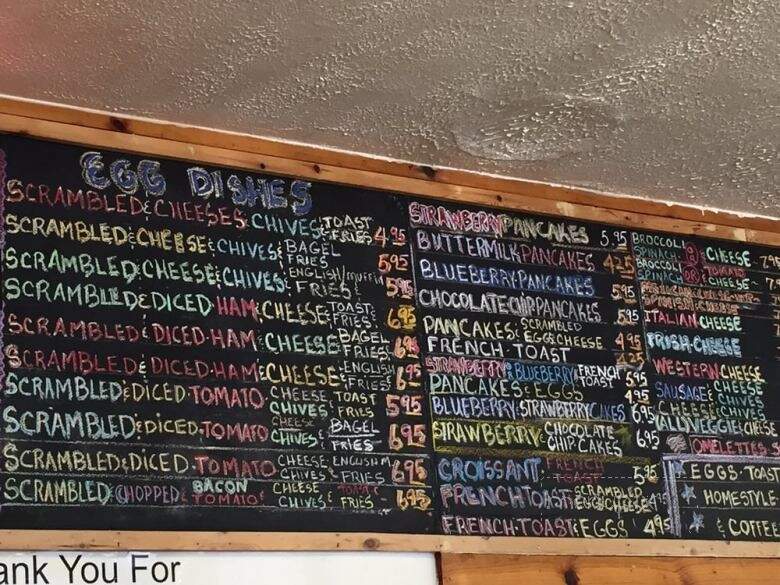 EGG DISHES
SCRAMBLED & CHEESES CHIVES & TOAST & FRIES 4.95
SCRAMBLED & CHEESE & CHIVES & BAGEL FRIES 5.95
SCRAMBLED & CHEESE & CHIVES & ENGLISH/muffin FRIES 5.95
SCRAMBLED & DICED HAM & CHEESE & TOAST & FRIES 6.95
SCRAMBLED & DICED HAM & CHEESE BAGEL FRIES 6.95
SCRAMBLED & DICED HAM & CHEESE & ENGLISH FRIES 6.95
SCRAMBLED & DICED TOMATO CHEESE & TOAST CHIVES & FRIES 5.95
SCRAMBLED & DICED TOMATO CHEESE & BAGEL CHIVES & FRIES 6.95
SCRAMBLED & DICED TOMATO CHEESE & ENGLISH M CHIVES & FRIES 6.95
SCRAMBLED & CHOPPED BACON & TOMATO & CHEESE & CHIVES & FRIES 6.95
STRAWBERRY PANCAKES 5.95
BUTTERMILK PANCAKES 4.25
BLUEBERRY PANCAKES 5.95
CHOCOLATE CHIP PANCAKES 5.95
PANCAKES & SCRAMBLED EGG & CHEESE 4.95
FRENCH TOAST 4.25
STRAWBERRY & BLUEBERRY FRENCH TOAST 5.95
PANCAKES & EGGS 4.95
BLUEBERRY & STRAWBERRY CAKES 6.95
STRAWBERRY & CHOCOLATE CHIP CAKES 6.95
CROISSANT FRENCH TOAST 5.95
FRENCH TOAST & SCRAMBLED EGG & CHEESE 4.95
FRENCH TOAST & EGGS 4.95
BROCCOLI SPINACH OR & CHEESE 7.95
BROCCOLI SPINACH OR TOMATO & CHEESE
SPINISH CHEESE
ITALIAN CHEESE
IRISH CHEESE
WESTERN CHEESE
SAUSAGE & CHEESE & CHIVES
CHEESE & CHIVES
ALL VEGGIE & CHEESE
OMELETTES S
EGGS TOAST
HOMESTYLE
& COFFEE
ank You For